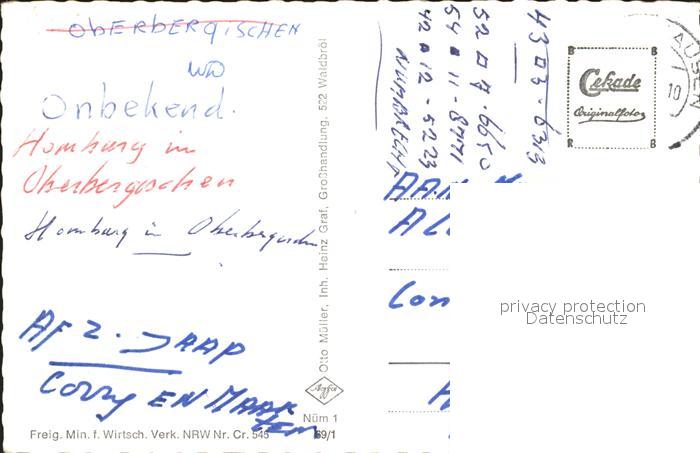 OBERBERGISCHEN
WD
Onbekend.
Homburg in
Oberbergischen
Homburg in Oberbergischen
AFZ. JAAP
CORRY EN MAARTEN
Freig. Min. f. Wirtsch. Verk. NRW Nr. Cr. 545
Nüm 1
69/1
Agfa
Otto Müller, Inh. Heinz Graf, Großhandlung, 522 Waldbröl
NUMBRECHT
42 12 - 5223
54 11 - 8771
52 07 - 6650
4303 - 6313
B B
Cekade
Originalfoto
R R
AUSEN
10
AA
AL
Con
privacy protection
Datenschutz